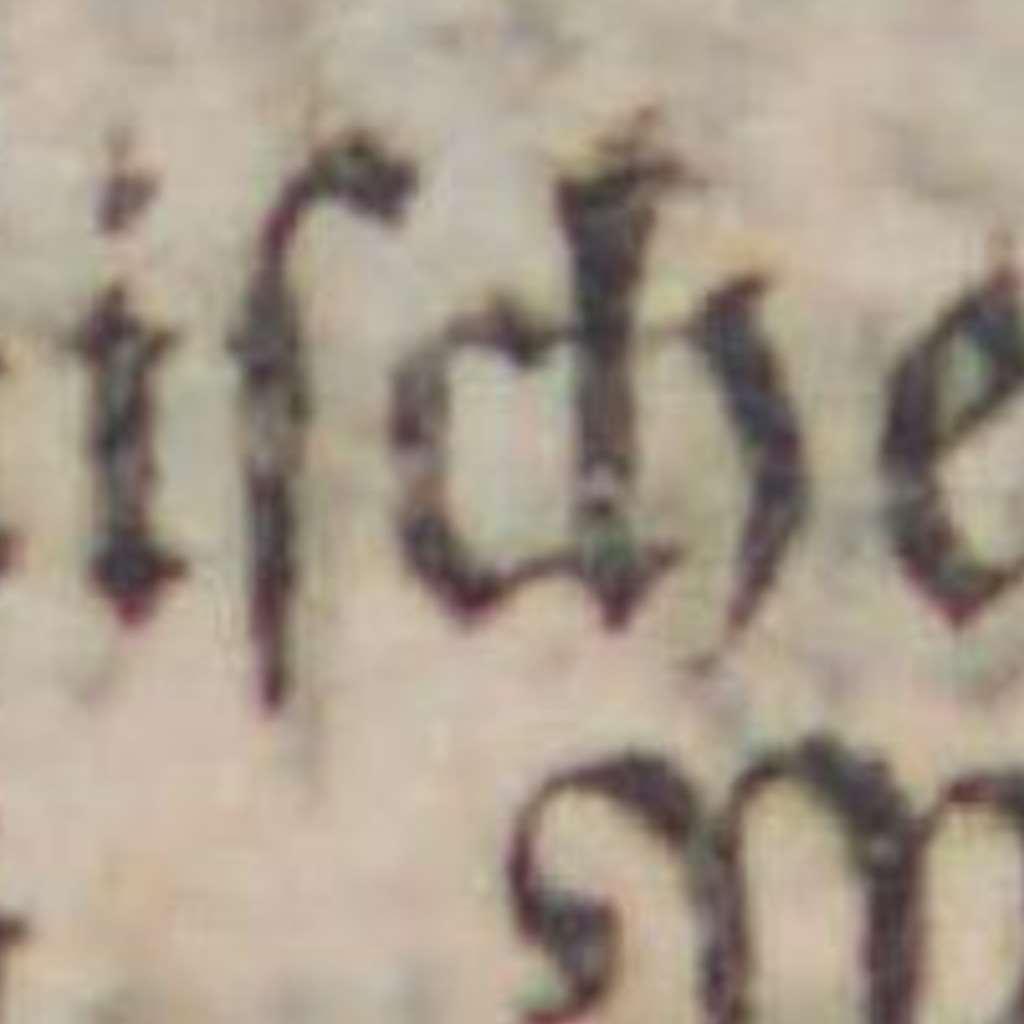 iſche
M